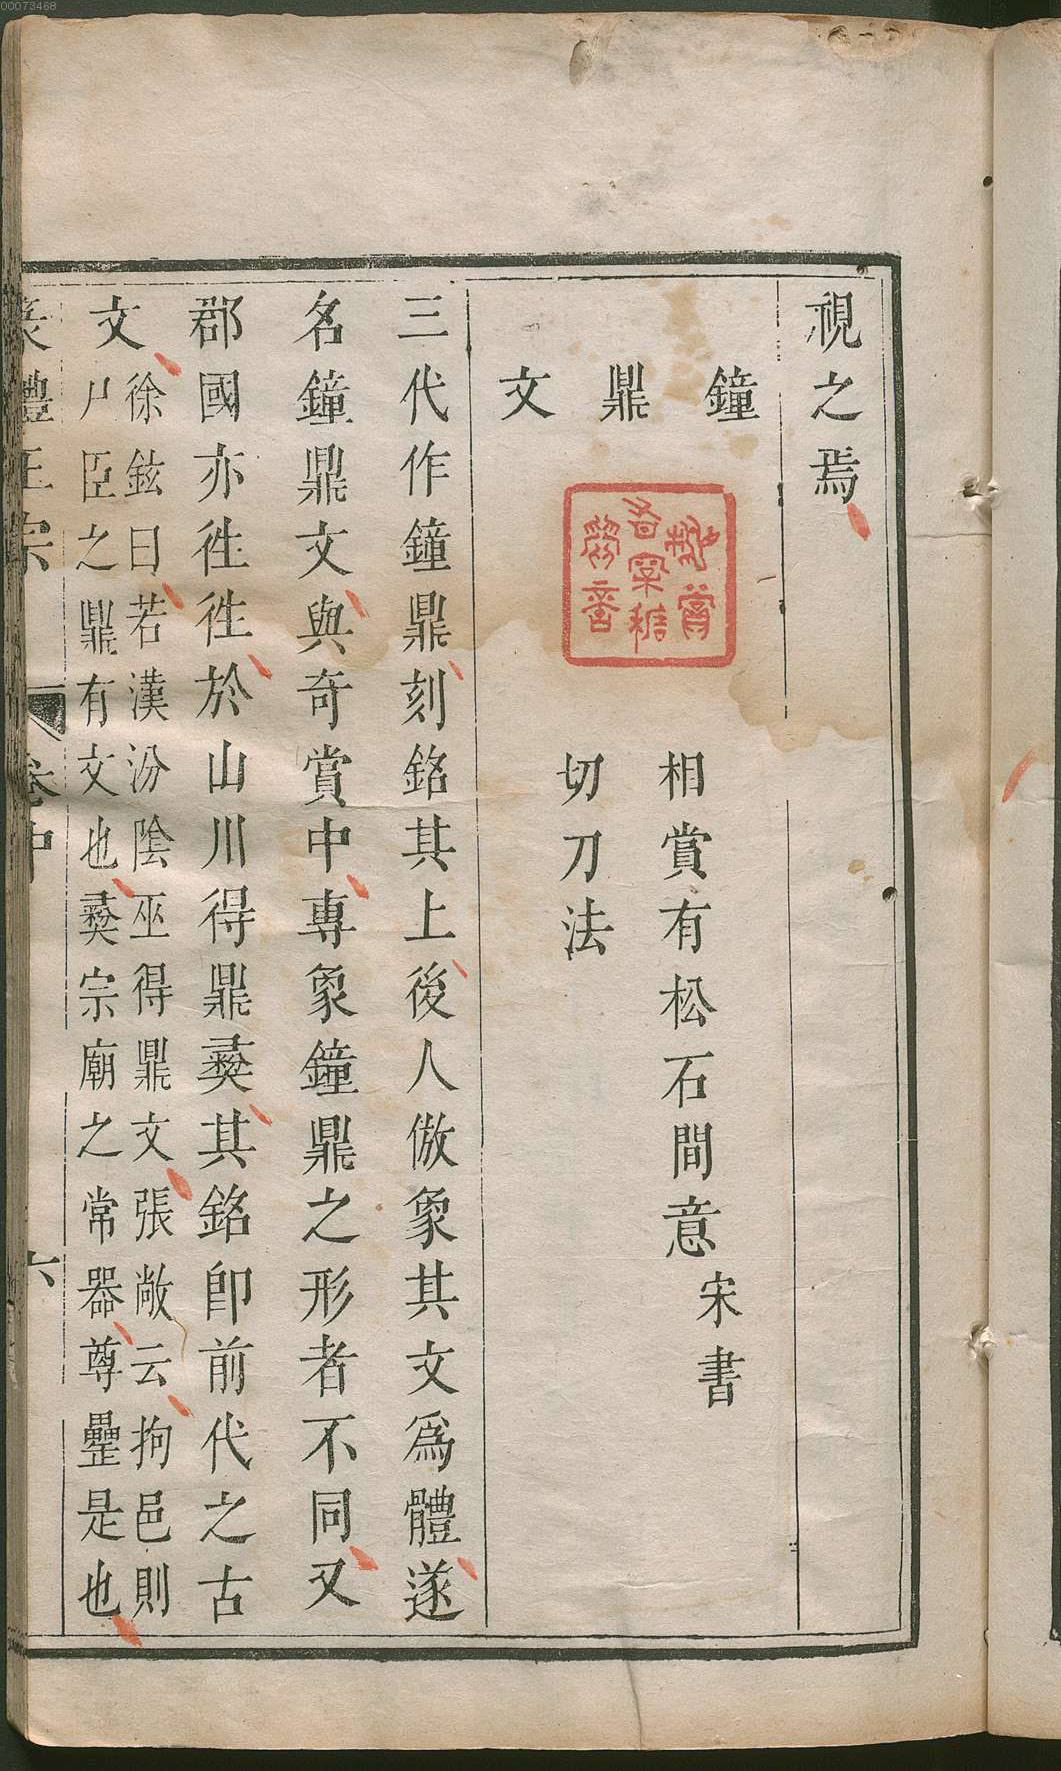 00073468
視之焉
鐘鼎文
相賞有松石間意
宋書
切刀法
三代作鐘鼎刻銘其上後人倣象其文爲體遂
名鐘鼎文與奇賞中專象鐘鼎之形者不同又
郡國亦徃徃於山川得鼎彞其銘卽前代之古
文
徐鉉曰若漢汾陰巫得鼎文張敞云拘邑則
尸臣之鼎有文也彞宗廟之常器尊罍是也
篆體正宗 卷中 六